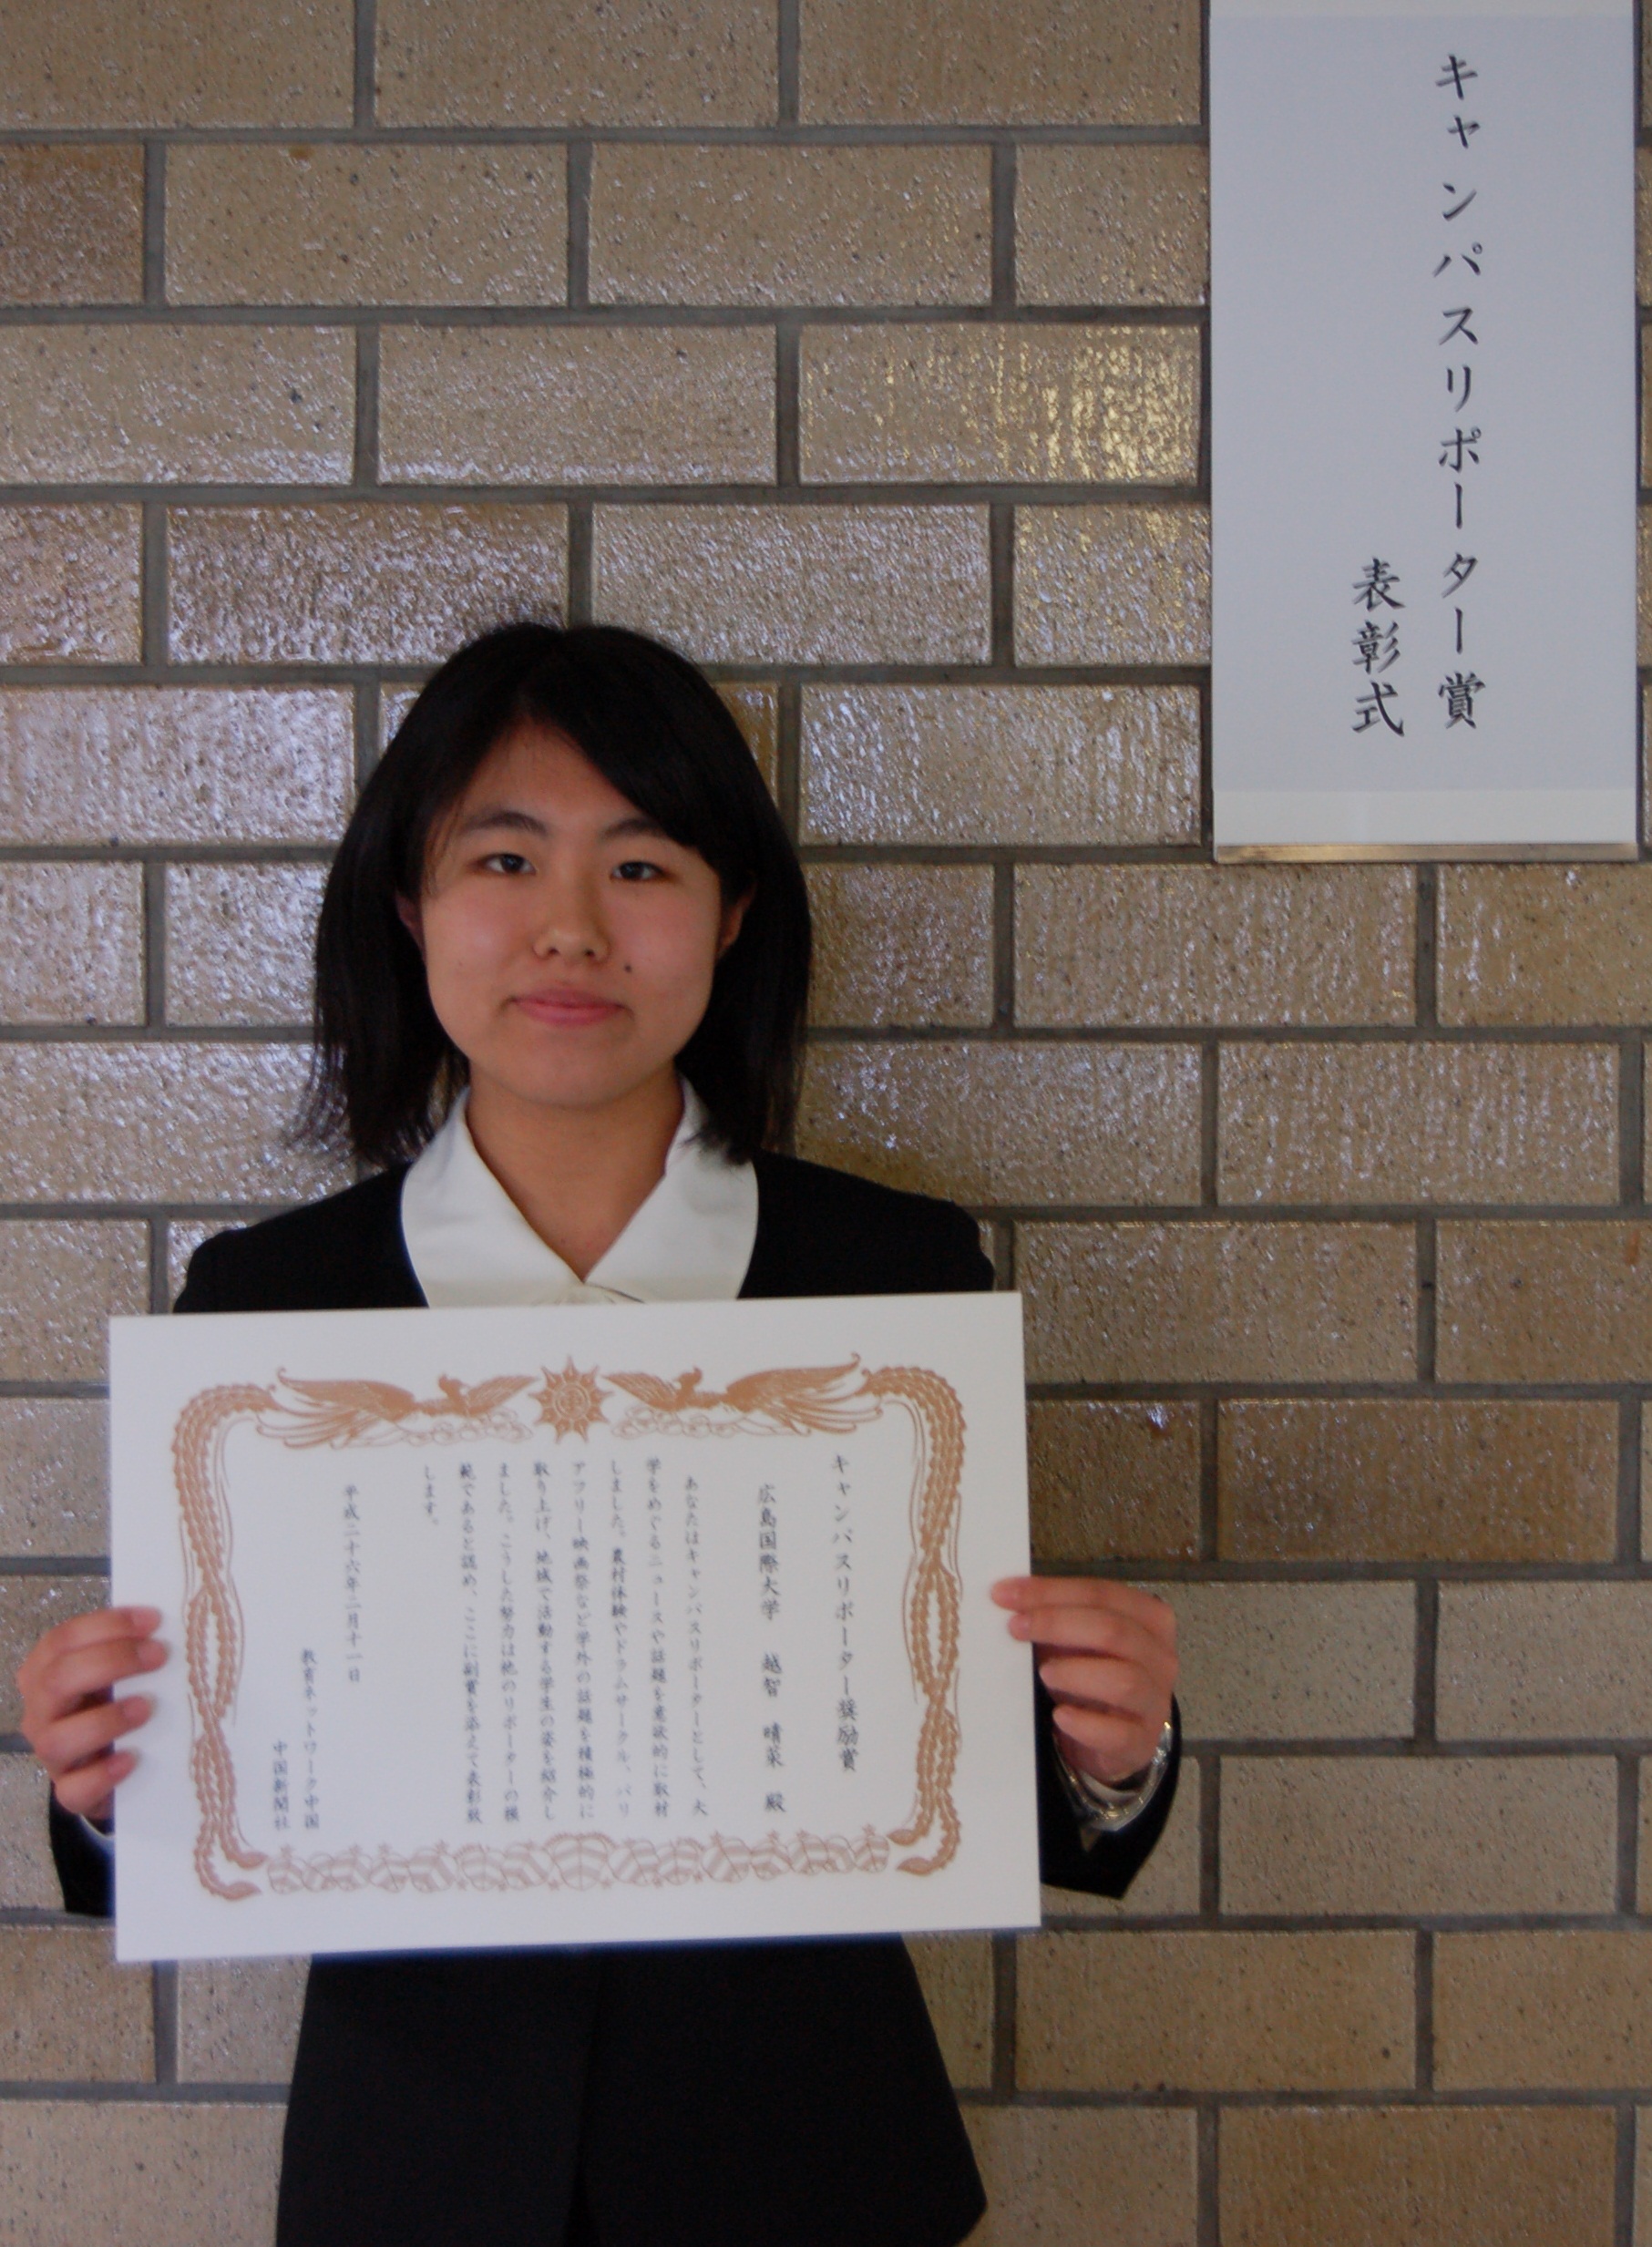 キャンパスリポーター賞
表彰式
キャンパスリポーター奨励賞
広島国際大学　越智　晴菜　殿
あなたはキャンパスリポーターとして、大
学をめぐるニュースや話題を意欲的に取材
しました。農村体験やドラムサークル、バリ
アフリー映画祭など学外の話題を積極的に
取り上げ、地域で活動する学生の姿を紹介し
ました。こうした努力は他のリポーターの模
範であると認め、ここに副賞を添えて表彰致
します。
平成二十六年二月十一日
教育ネットワーク中国
中国新聞社